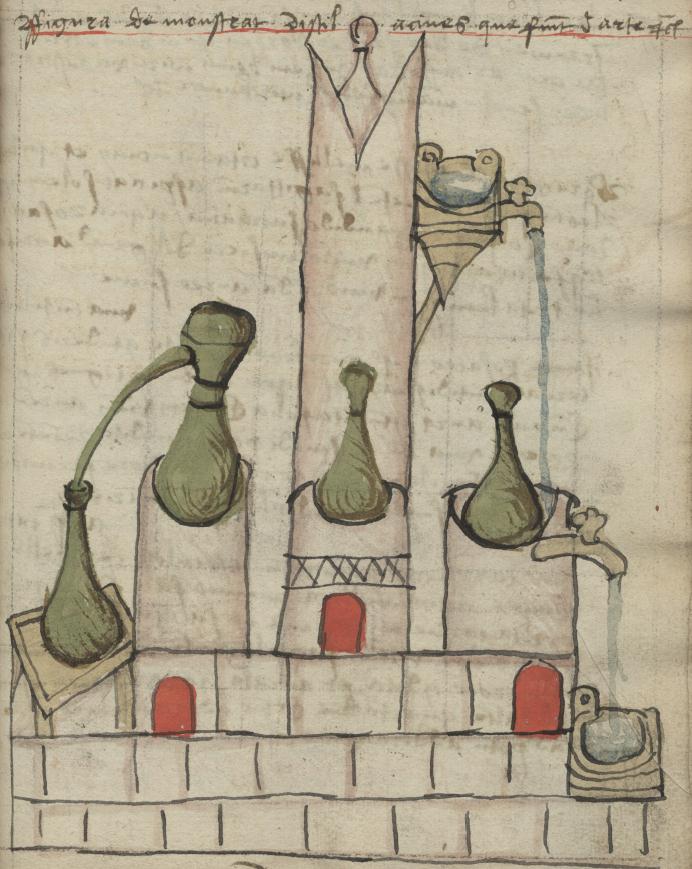 Affigura de monstrat distil aciones que sunt d arte